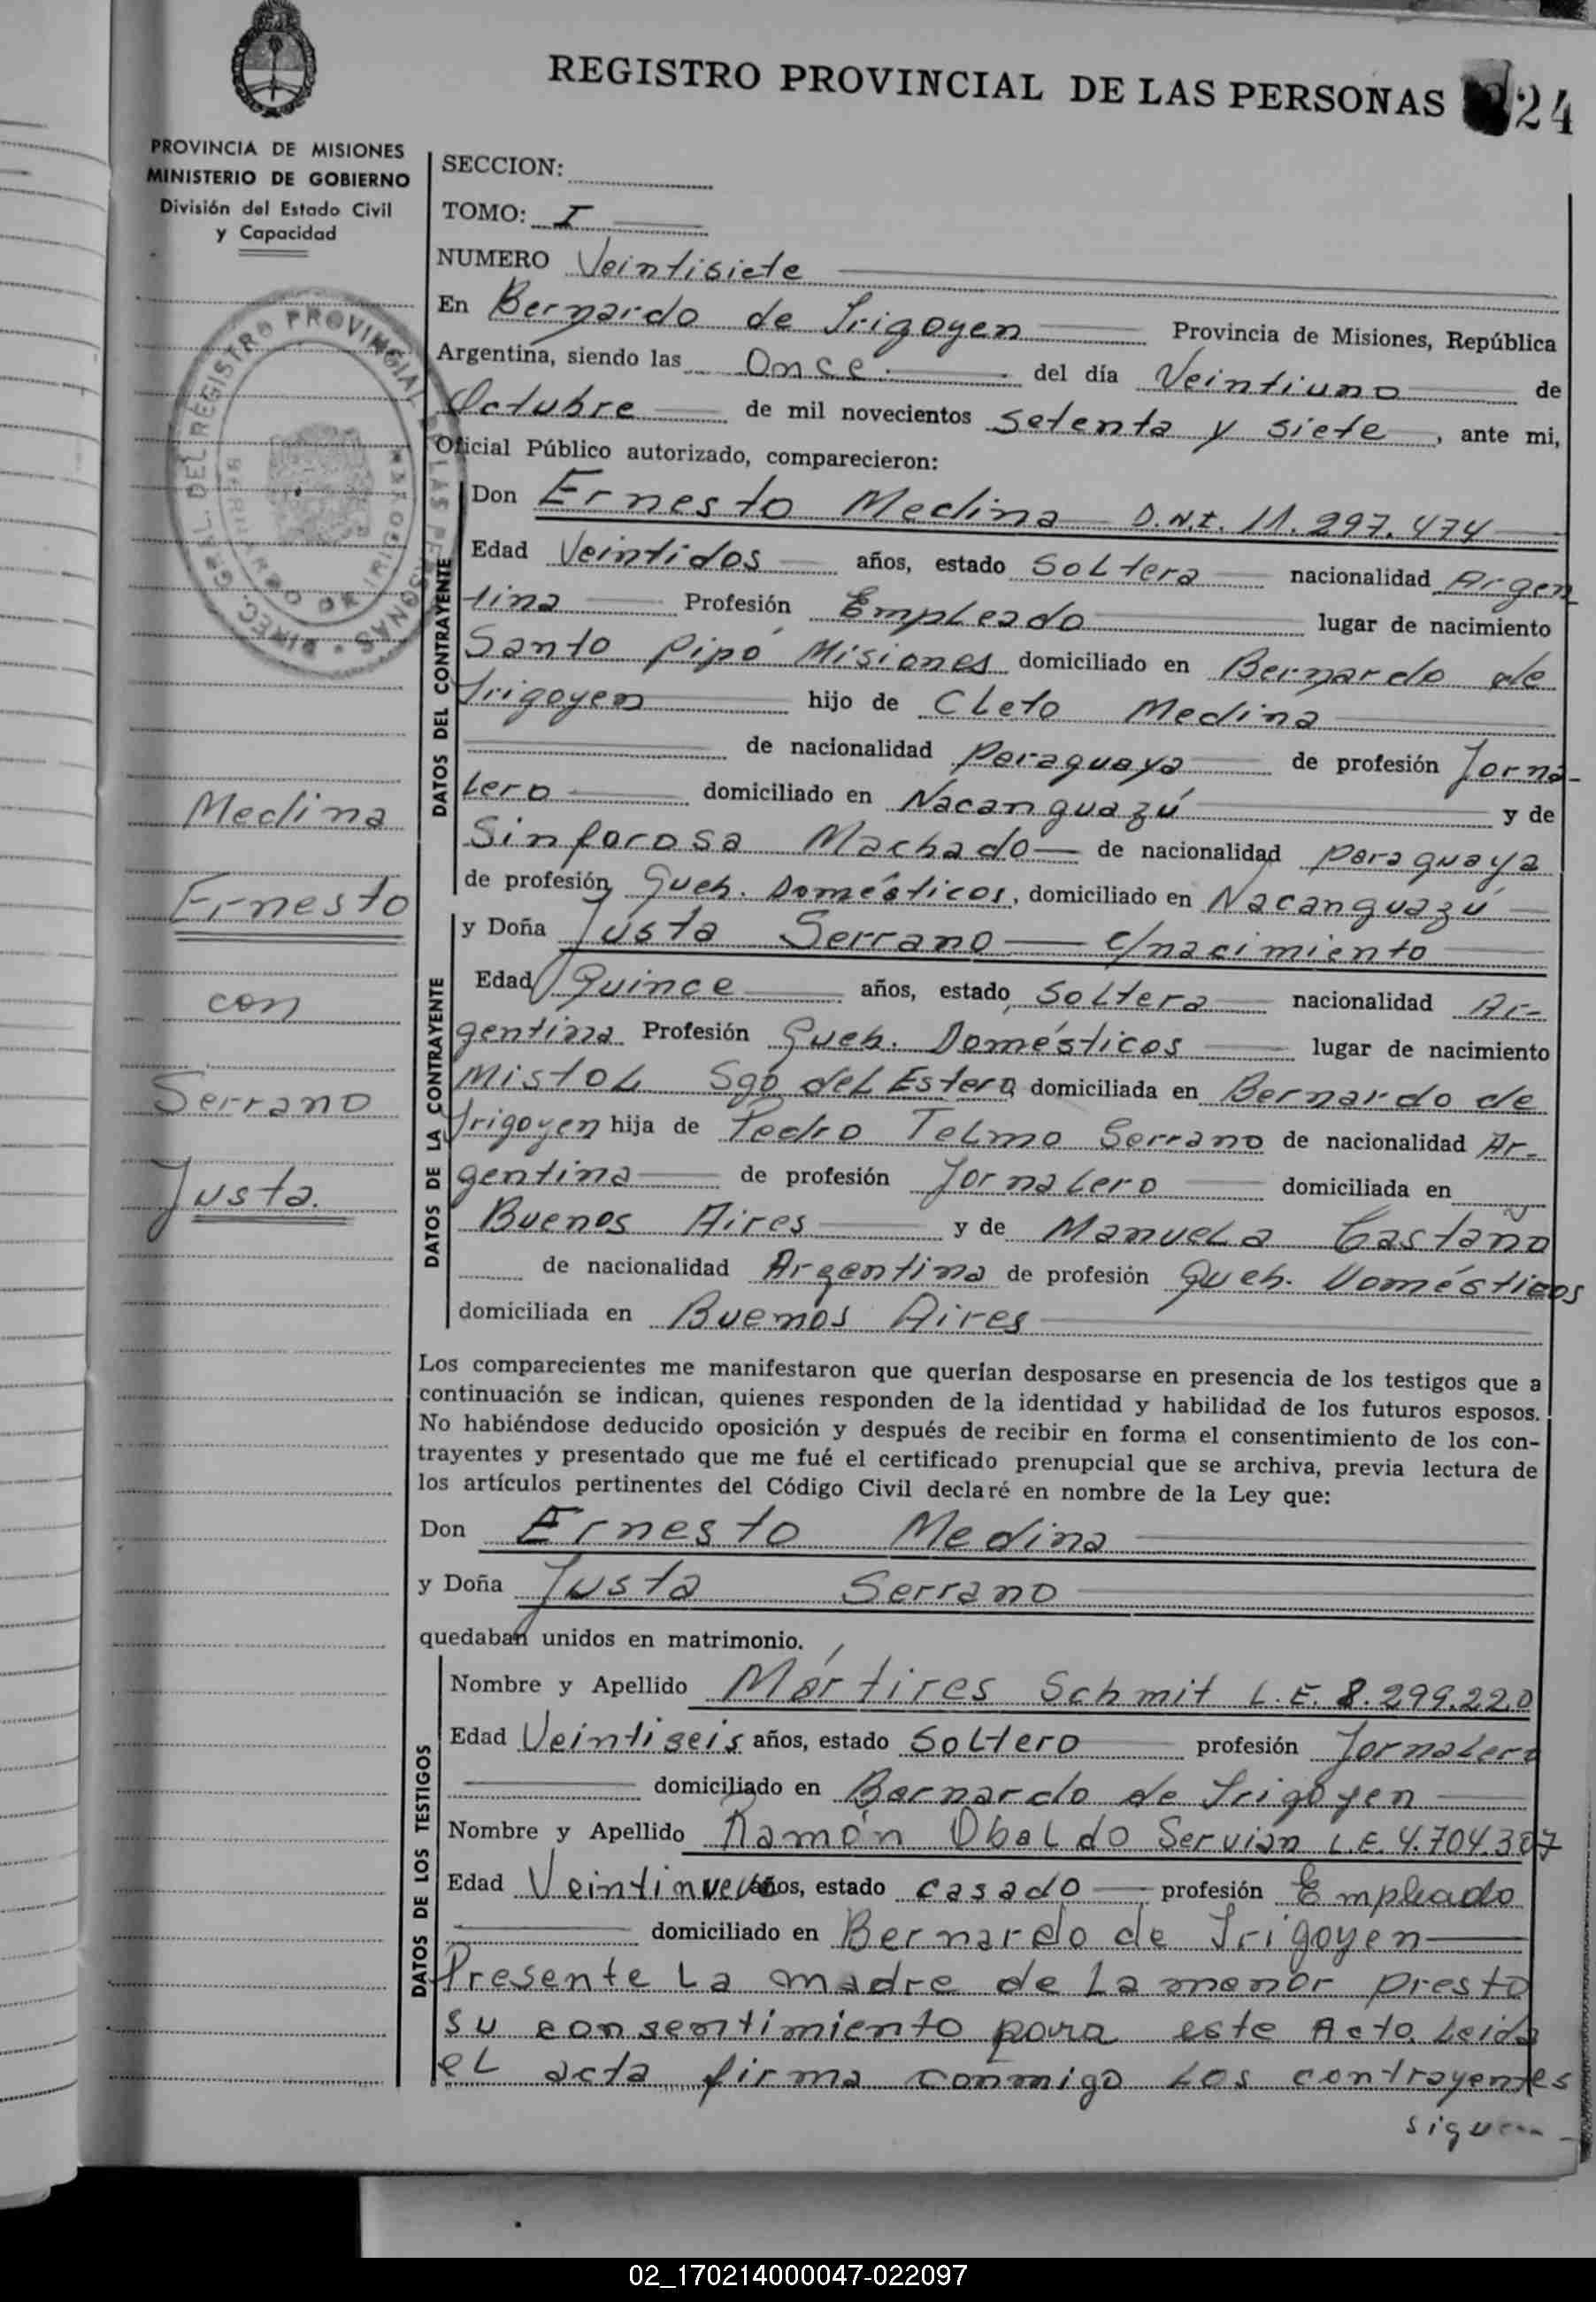 REGISTRO PROVINCIAL DE LAS PERSONAS 24
PROVINCIA DE MISIONES
MINISTERIO DE GOBIERNO
División del Estado Civil
y Capacidad
DIREC. GRAL. DEL REGISTRO PROVINCIAL DE LAS PERSONAS
SECCION:
TOMO: I
NUMERO Veintisiete
En Bernardo de Irigoyen Provincia de Misiones, República
Argentina, siendo las Once del día Veintiuno de
Octubre de mil novecientos setenta y siete, ante mi,
Oficial Público autorizado, comparecieron:
DATOS DEL CONTRAYENTE
Don Ernesto Medina D.N.I. 11.297.474
Edad Veintidos años, estado Soltera nacionalidad Argen
tina Profesión Empleado lugar de nacimiento
Santo Pipó Misiones domiciliado en Bernardo de
Irigoyen hijo de Cleto Medina
de nacionalidad Paraguaya de profesión Jorna-
lero domiciliado en Ñacanguazú y de
Sinforosa Machado de nacionalidad paraguaya
de profesión Queh. Domésticos, domiciliado en Ñacanguazú
Medina
Ernesto
con
Serrano
Justa.
DATOS DE LA CONTRAYENTE
y Doña Justa Serrano c/nacimiento
Edad Quince años, estado Soltera nacionalidad Ar-
gentina Profesión Queh. Domésticos lugar de nacimiento
Mistol Sgo del Estero domiciliada en Bernardo de
Irigoyen hija de Pedro Telmo Serrano de nacionalidad Ar-
gentina de profesión Jornalero domiciliada en
Buenos Aires y de Manuela Castaño
de nacionalidad Argentina de profesión Queh. Domésticos
domiciliada en Buenos Aires
Los comparecientes me manifestaron que querían desposarse en presencia de los testigos que a
continuación se indican, quienes responden de la identidad y habilidad de los futuros esposos.
No habiéndose deducido oposición y después de recibir en forma el consentimiento de los con-
trayentes y presentado que me fué el certificado prenupcial que se archiva, previa lectura de
los artículos pertinentes del Código Civil declaré en nombre de la Ley que:
Don Ernesto Medina
y Doña Justa Serrano
quedaban unidos en matrimonio.
DATOS DE LOS TESTIGOS
Nombre y Apellido Mártires Schmit L.E. 8.299.220
Edad Veintiseis años, estado Soltero profesión Jornalero
domiciliado en Bernardo de Irigoyen
Nombre y Apellido Ramón Obaldo Servian L.E. 4.704.307
Edad Veintinueve años, estado casado profesión Empleado
domiciliado en Bernardo de Irigoyen
Presente La madre de la menor presto
su consentimiento para este Acto. Leida
el acta firma conmigo los contrayentes
sigue
02_170214000047-022097